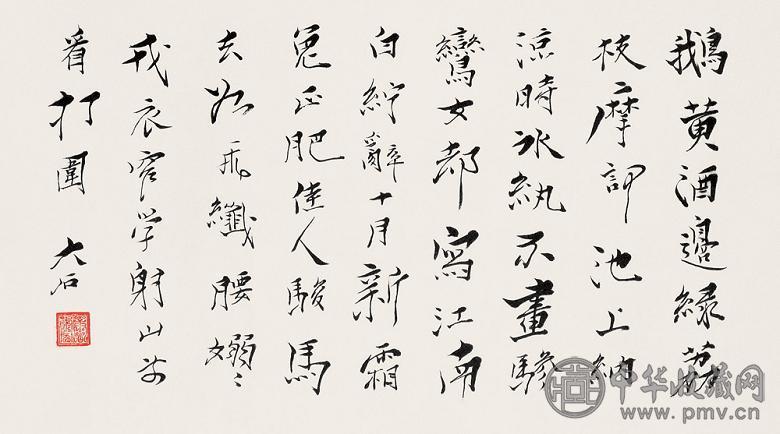 鵝黄酒邊緑荔
枝摩訶池上納
涼時冰紈不畫驂
鸞女却寫江南
白紵辭十月新霜
兔正肥佳人駿馬
去如飛纖腰嫋〻
戎衣窄学射山前
看打圍 大石
中华收藏网
www.pmv.cn